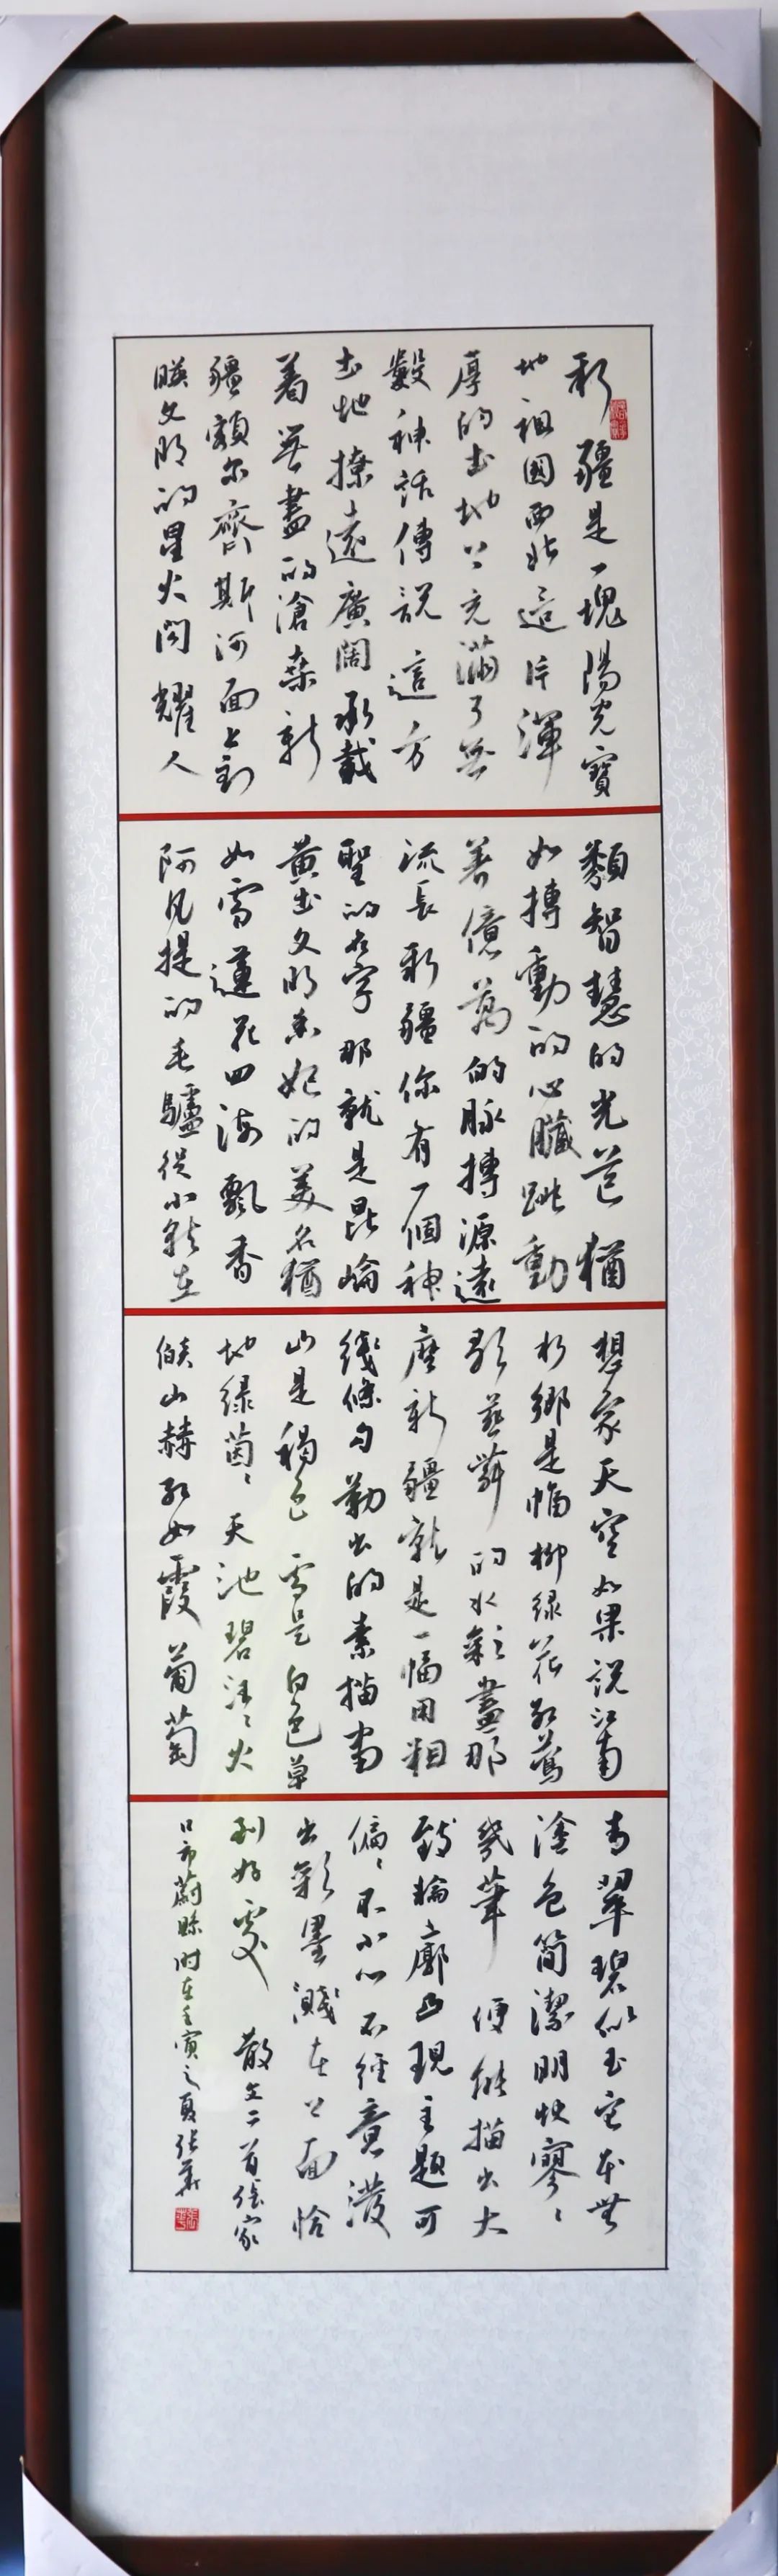 新疆是一塊陽光寶
地祖國西北這片渾
厚的土地上充滿了無
數神話傳説這方
土地撩遠廣闊承載
着無盡的滄桑新
疆額尔齊斯河面上割
暎文明的星火閃耀人
類智慧的光芒猶
如搏動的心臟跳動
着億萬的脉搏源遠
流長新疆你有一個神
聖的名字那就是昆崙
黄土文明香妃的美名猶
如雪蓮花四海飄香
阿凡提的毛驢從小就在
想象天空如果説江南
水鄉是幅柳绿花紅鶯
歌燕舞的水彩畫那
麽新疆就是一幅用粗
綫條勾勒出的素描畫
山是褐色雪是白色草
地绿茵〻天池碧清〻火
燄山赫紅如霞葡萄
青翠碧似玉它本無
塗色簡潔明快寥〻
幾筆便能描出大
致輪廓凸現主題可
偏〻不小心不經意潑
出彩墨濺在上面恰
到好處散文二首張家
口市蔚縣时在壬寅之夏張華